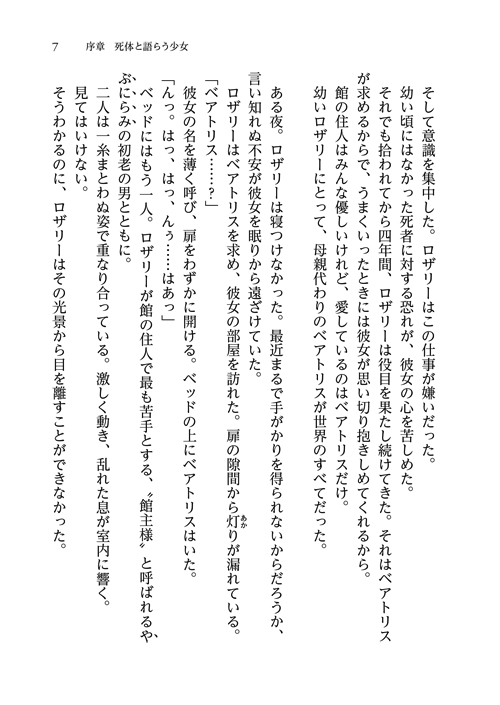 7　序章　死体と語らう少女
そして意識を集中した。ロザリーはこの仕事が嫌いだった。
幼い頃にはなかった死者に対する恐れが、彼女の心を苦しめた。
それでも拾われてから四年間、ロザリーは役目を果たし続けてきた。それはベアトリス
が求めるからで、うまくいったときには彼女が思い切り抱きしめてくれるから。
館の住人はみんな優しいけれど、愛しているのはベアトリスだけ。
幼いロザリーにとって、母親代わりのベアトリスが世界のすべてだった。
ある夜。ロザリーは寝つけなかった。最近まるで手がかりを得られないからだろうか、
言い知れぬ不安が彼女を眠りから遠ざけていた。
ロザリーはベアトリスを求め、彼女の部屋を訪れた。扉の隙間から灯りが漏れている。
あか
「ベアトリス……？」
彼女の名を薄く呼び、扉をわずかに開ける。ベッドの上にベアトリスはいた。
「んっ。はっ、はっ、んぅ……はあっ」
ベッドにはもう一人。ロザリーが館の住人で最も苦手とする、〝館主様〟と呼ばれるや
ぶにらみの初老の男とともに。
二人は一糸まとわぬ姿で重なり合っている。激しく動き、乱れた息が室内に響く。
見てはいけない。
そうわかるのに、ロザリーはその光景から目を離すことができなかった。